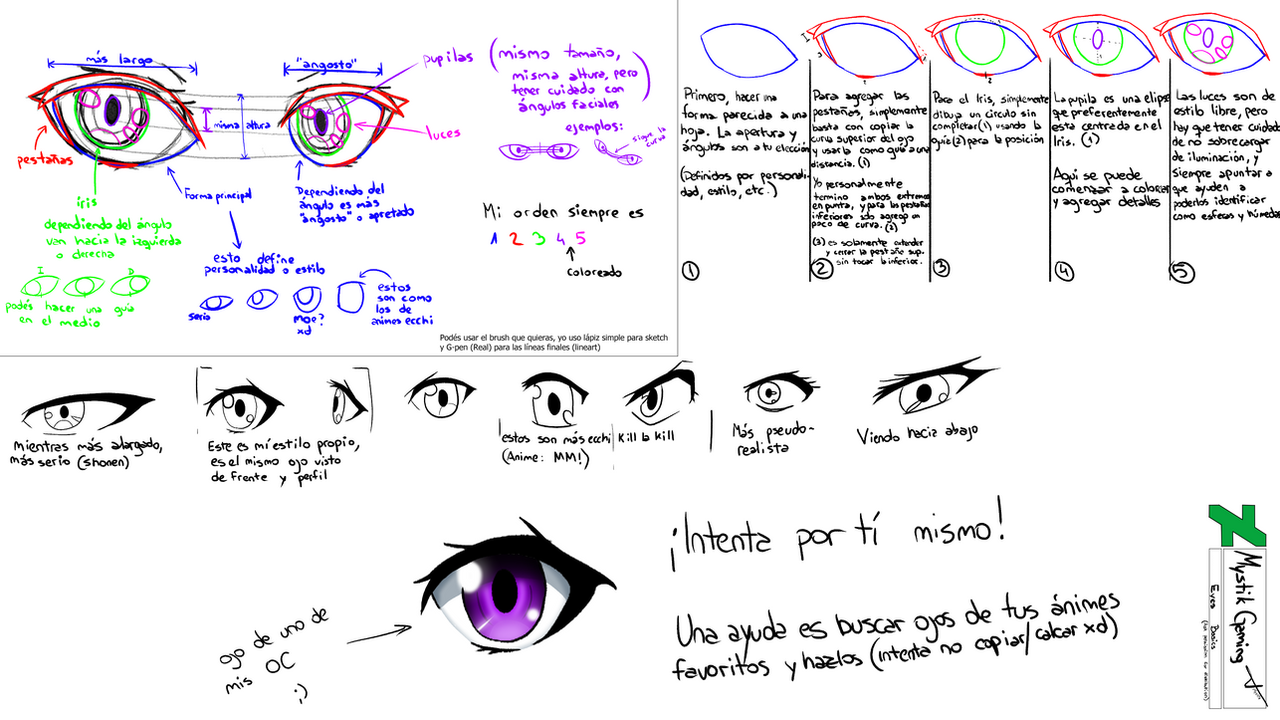 más largo
"angosto"
misma altura
pestañas
iris
dependiendo del ángulo
van hacia la izquierda
o derecha
I
D
podés hacer una guía
en el medio
Forma principal
esto define
personalidad o estilo
serio
moe?
xd
estos
son como
los de
animes ecchi
Dependiendo del
ángulo es más
"angosto" o apretado
pupilas
luces
(mismo tamaño,
misma altura, pero
tener cuidado con
ángulos faciales)
ejemplos:
sigue la
curva
Mi orden siempre es
1 2 3 4 5
coloreado
Podés usar el brush que quieras, yo uso lápiz simple para sketch
y G-pen (Real) para las líneas finales (lineart)
Primero, hacer una
forma parecida a una
hoja. La apertura y
ángulos son a tu elección
(Definidos por personali-
dad, estilo, etc.)
1
Para agregar las
pestañas, simplemente
basta con copiar la
curva superior del ojo
y usarla como guía a una
distancia. (1)
Yo personalmente
termino ambos extremos
en punta, y para las pestañas
inferiores solo agrego un
poco de curva. (2)
(3) es solamente extender
y cerrar la pestaña sup.
sin tocar la inferior.
2
Para el Iris, simplemente
dibuja un círculo sin
completar (1) usando la
guía (2) para la posición
3
La pupila es una elipse
que preferentemente
esta centrada en el
Iris. (1)
Aquí se puede
comenzar a colorear
y agregar detalles
4
Las luces son de
estilo libre, pero
hay que tener cuidado
de no sobrecargar
de iluminación, y
siempre apuntar a
que ayuden a
poderlos identificar
como esferas y húmedas
5
mientras más alargado,
más serio (shonen)
Este es mi estilo propio,
es el mismo ojo visto
de frente y perfil
estos son más ecchi
(Anime: MM!)
Kill la kill
Más pseudo-
realista
Viendo hacia abajo
ojo de uno de
mis OC
;)
¡Intenta por tí mismo!
Una ayuda es buscar ojos de tus ánimes
favoritos y hazlos (intenta no copiar/calcar xd)
Mystik Gaming
Eyes Basics